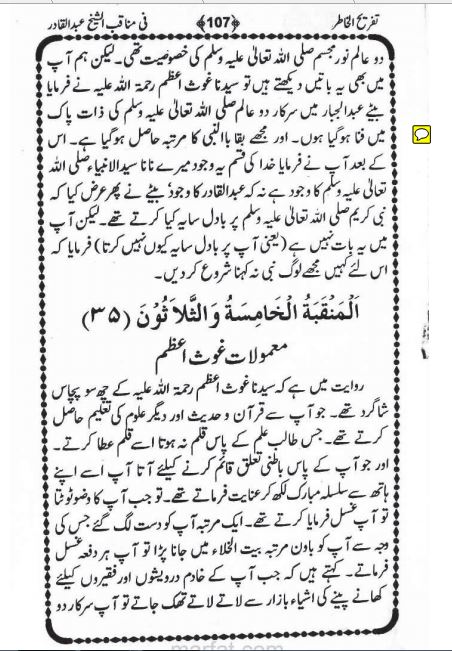 تفریح الخاطر ﴿107﴾ فی مناقب الشیخ عبدالقادر
دو عالم نور مجسم صلی اللہ تعالیٰ علیہ وسلم کی خصوصیت تھی۔ لیکن ہم آپ
میں بھی یہ باتیں دیکھتے ہیں تو سیدنا غوث اعظم رحمۃ اللہ علیہ نے فرمایا
بیٹے عبدالجبار میں سرکار دو عالم صلی اللہ تعالیٰ علیہ وسلم کی ذات پاک
میں فنا ہوگیا ہوں۔ اور مجھے بقا باالنبی کا مرتبہ حاصل ہوگیا ہے۔ اس
کے بعد آپ نے فرمایا خدا کی قسم یہ وجود میرے نانا سید الانبیاء صلی اللہ
تعالیٰ علیہ وسلم کا وجود ہے نہ کہ عبدالقادر کا وجود بیٹے نے پھر عرض کیا کہ
نبی کریم صلی اللہ تعالیٰ علیہ وسلم پر بادل سایہ کیا کرتے تھے۔ لیکن آپ
میں یہ بات نہیں ہے (یعنی آپ پر بادل سایہ کیوں نہیں کرتا) فرمایا کہ
اس لئے کہیں مجھے لوگ نبی نہ کہنا شروع کردیں۔
اَلْمَنْقَبَۃُ الْخَامِسَۃُ وَالثَّلَاثُوْنَ (۳۵)
معمولات غوث اعظم
روایت میں ہے کہ سیدنا غوث اعظم رحمۃ اللہ علیہ کے چھ سو پچاس
شاگرد تھے۔ جو آپ سے قرآن و حدیث اور دیگر علوم کی تعلیم حاصل
کرتے تھے۔ جس طالب علم کے پاس قلم نہ ہوتا اسے قلم عطا کرتے۔
اور جو آپ کے پاس باطنی تعلق قائم کرنے کیلئے آتا آپ اُسے اپنے
ہاتھ سے سلسلہ مبارک لکھ کر عنایت فرماتے تھے۔ تو جب آپ کا وضو ٹوٹتا
تو آپ غسل فرمایا کرتے تھے۔ ایک مرتبہ آپ کو دست لگ گئے جس کی
وجہ سے آپ کو باون مرتبہ بیت الخلاء میں جانا پڑا تو آپ ہر دفعہ غسل
فرماتے۔ کہتے ہیں کہ جب آپ کے خادم درویشوں اور فقیروں کیلئے
کھانے پینے کی اشیاء بازار سے لاتے لاتے تھک جاتے تو آپ سرکار دو
marfat.com